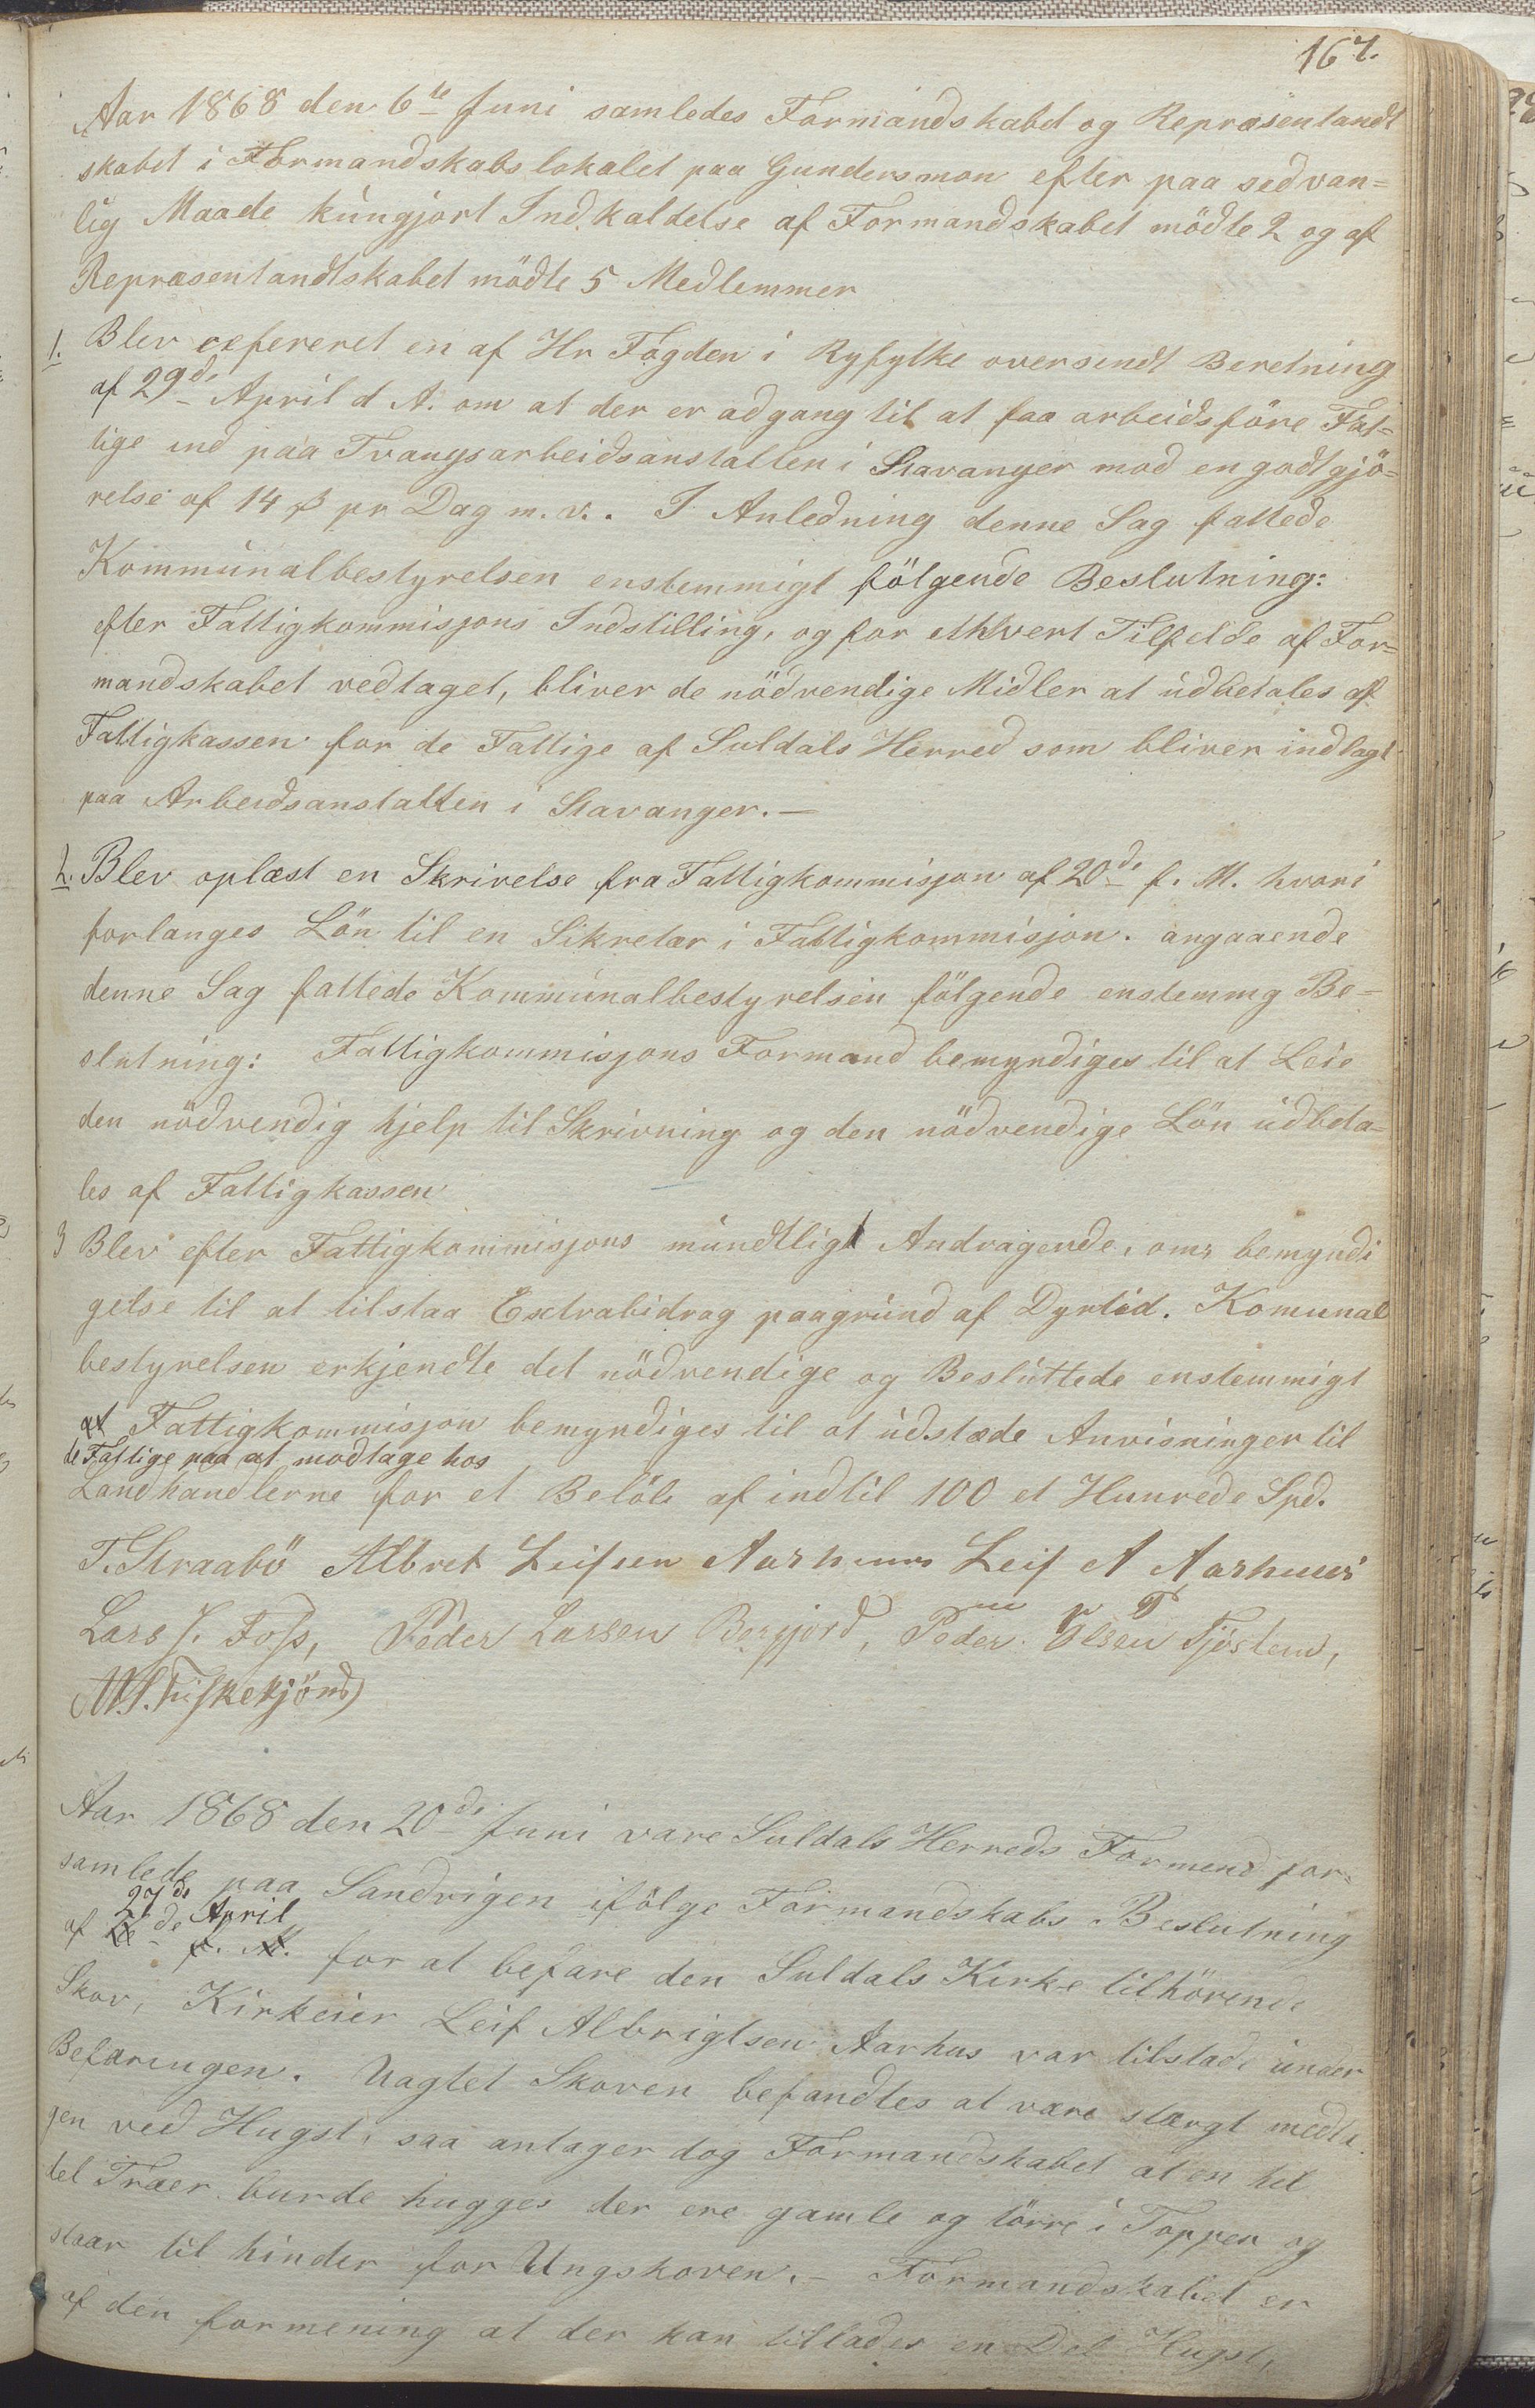 167.
Aar 1868 den 6te Juni samledes Formandskabet og Repræsentandt
skabet i Formandskabslokalet paa Gundersmon efter paa sedvan=
lig Maade kungjort Indkaldelse af Formandskabet mödte 2 og af
Repræsentandtskabet mödte 5 Medlemmer
1. Blev refereret en af Hr Fogden i Ryfylke oversendt Beretning
af 29de April d A. om at der er adgang til at faa arbeidsföre Fat=
tige ind paa Tvangsarbeidsanstalten i Stavanger mod en godtgjö=
relse af 14 ß pr Dag m. v. I Anledning denne Sag fattede
Kommunalbestyrelsen enstemmigt fölgende Beslutning:
efter Fattigkommisjons Indstilling, og for ethvert Tilfelde af For=
mandskabet vedtaget, bliver de nödvendige Midler at udbetales af
Fattigkassen for de Fattige af Suldals Herred som bliver indlagt
paa Arbeidsanstalten i Stavanger.—
2. Blev oplæst en Skrivelse fra Fattigkommisjon af 20de f. M. hvori
forlanges Lön til en Sikretær i Fattigkommisjon. angaaende
denne Sag fattede Kommunalbestyrelsen fölgende enstemmg Be=
slutning: Fattigkommisjons Formand bemyndiges til at Leie
den nödvendig hjelp til Skrivning og den nödvendige Lön udbeta=
les af Fattigkassen
3 Blev efter Fattigkommisjons mundtligt Andragende, om bemyndi
gelse til at tilstaa Extrabidrag paagrund af Dyrtid. Komunal
bestyrelsen erkjendte det nödvendige og Besluttede enstemmigt
at Fattigkommisjon bemyndiges til at udstæde Anvisninger til
de Fattige paa at modtage hos
Landhandlerne for et Belöb af indtil 100 et Hunrede Spd.
T. Straabö Albret Leifsen Aarhuus Leif A Aarhuus
Lars J. Foss, Peder Larsen Bergjord, Peder Olsen Tjöstem,
Aar 1868 den 20de Juni vare Suldals Herreds Formend for=
samlede paa Sandvigen ifölge Formandskabs Beslutning
27de April
af f. M. for at befare den Suldals Kirke tilhörende
Skov, Kirkeier Leif Albrigtsen Aarhus var tilstade under
Befaringen. Uagtet Skoven befandtes at være stærgt medta
gen ved Hugst, saa antager dog Formandskabet at en hel
del Træer burde hugges der ere gamle og törre i Toppen og
staar til hinder for Ungskoven.— Formandskabet er
af den formening at der kan tillades en Del Hugst,